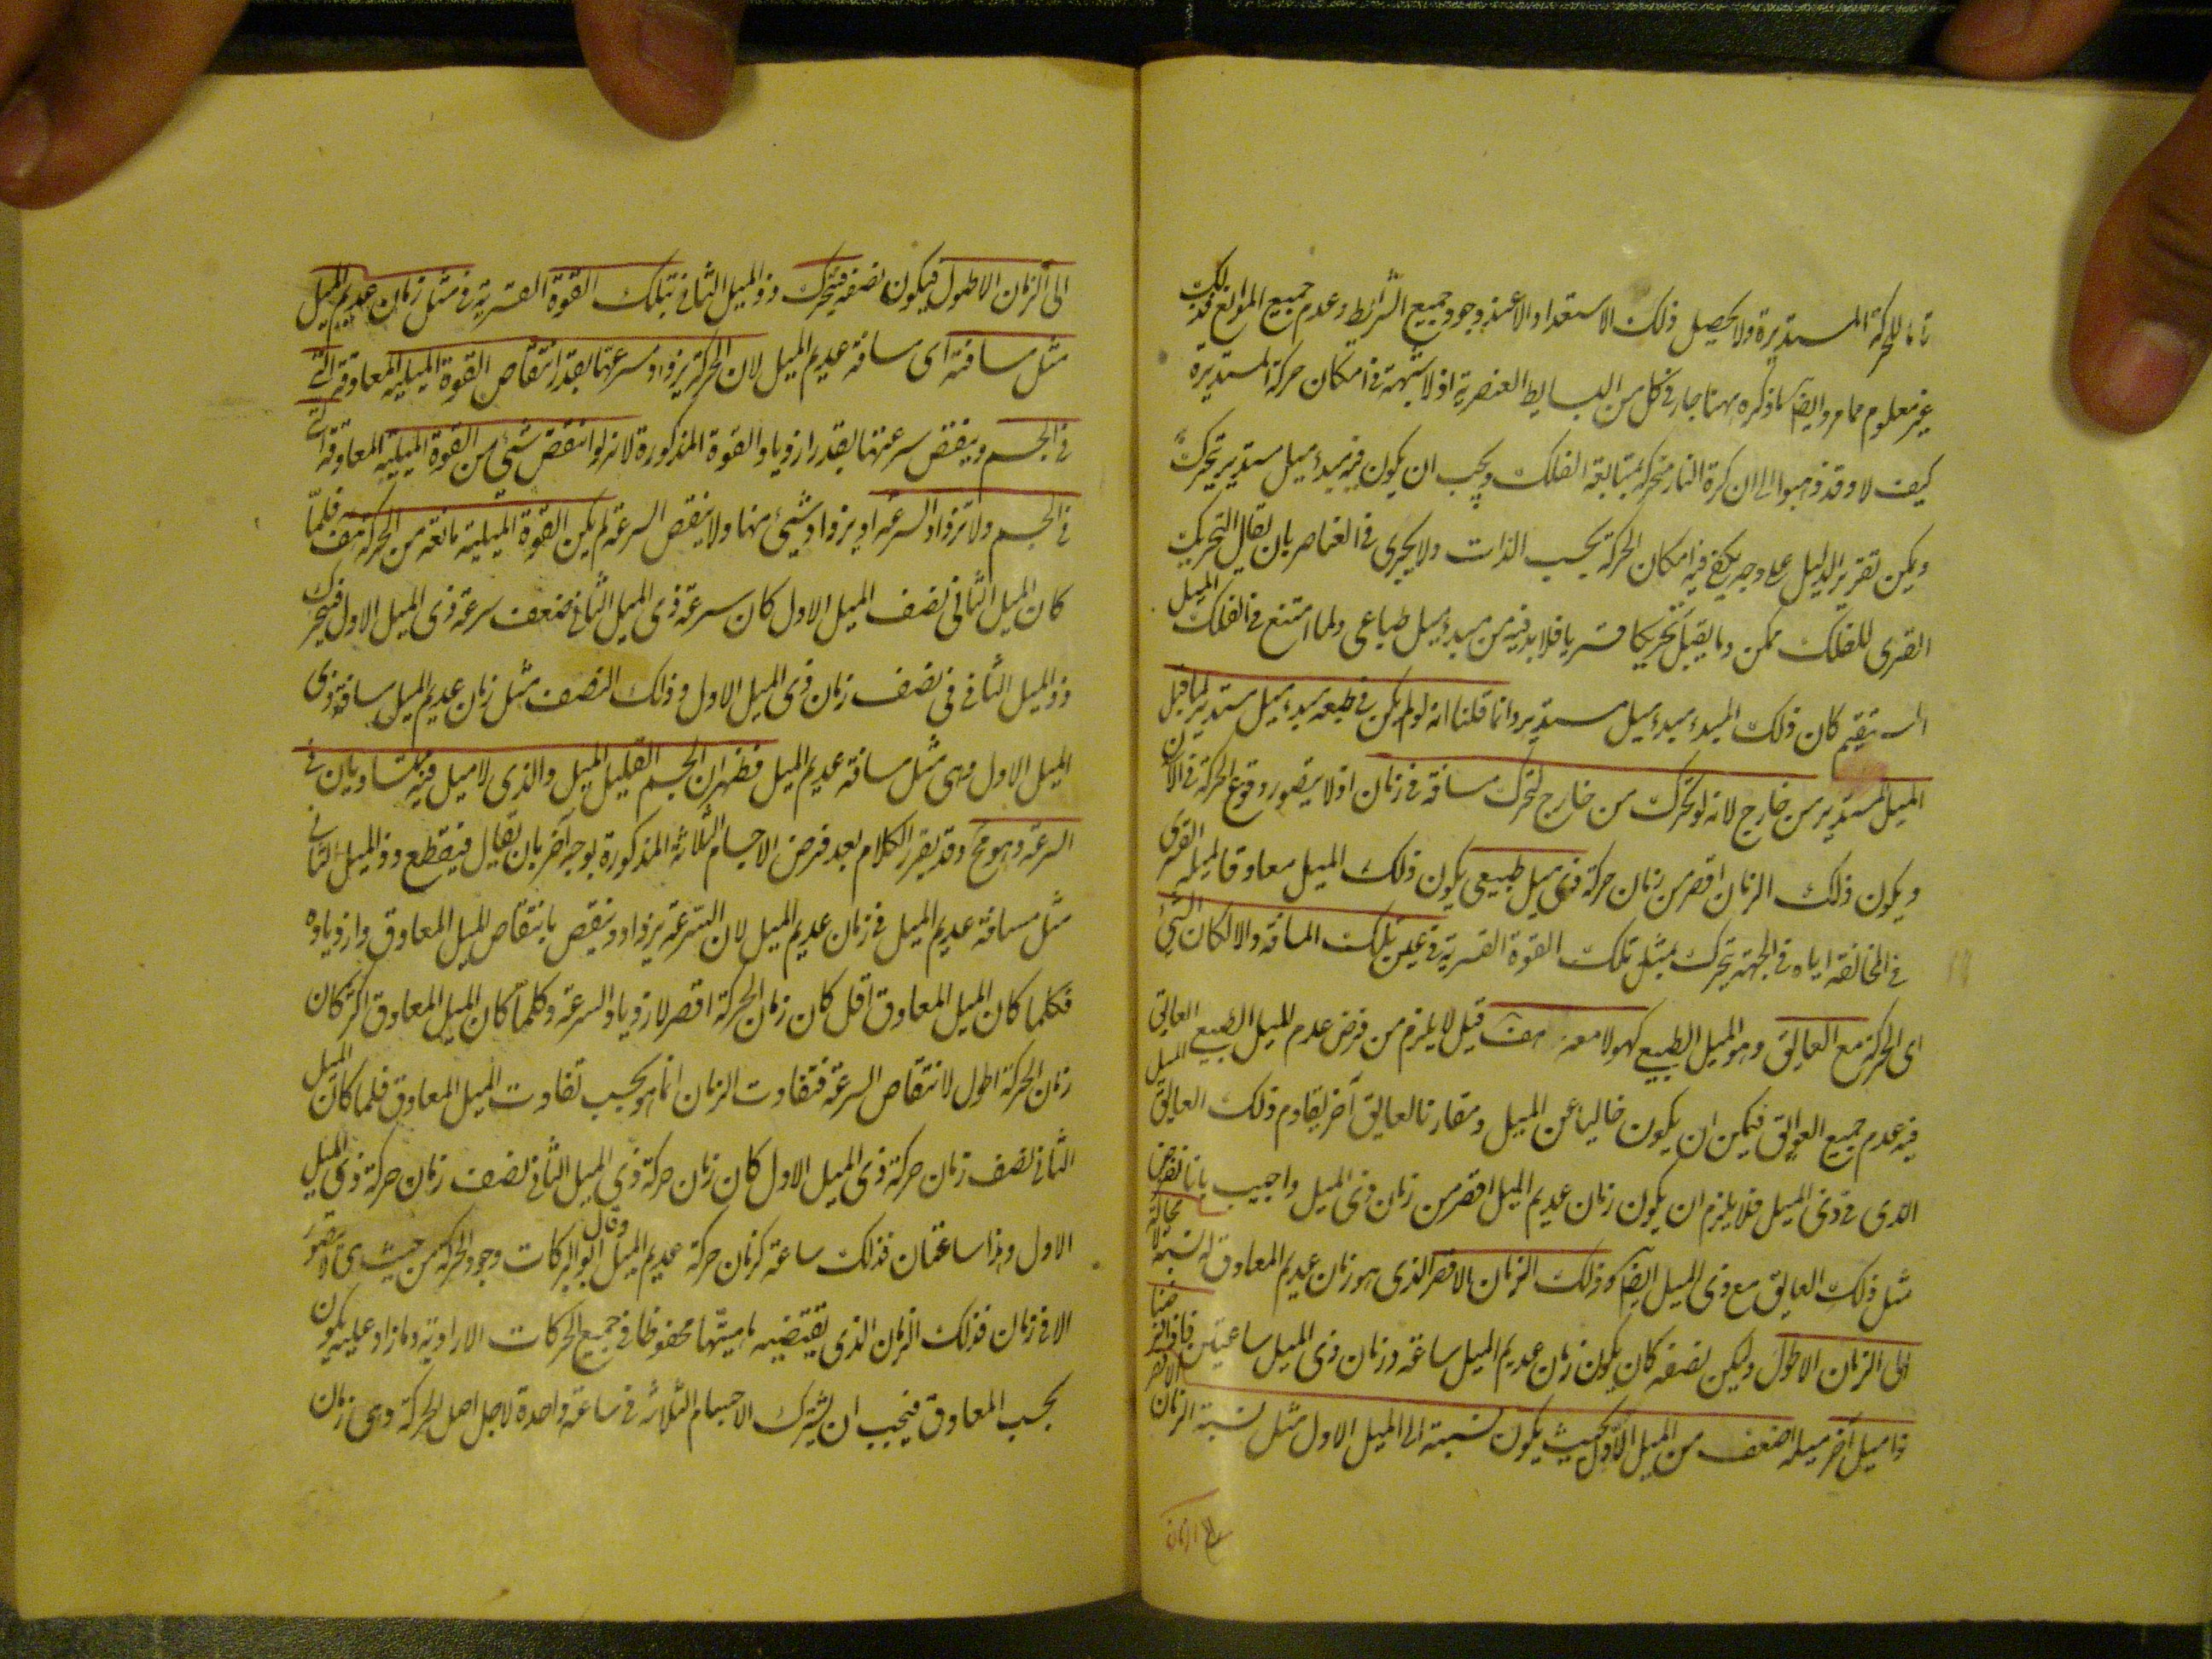 تاما للحركة المستديرة ولا يحصل ذلك الاستعداد الا عند وجود جميع الشرايط وعدم جميع الموانع فذلك
غير معلوم مما مر وايضا ما ذكره ههنا جار في كل من البسايط العنصرية اذ لا شبهة في امكان حركة المستديرة
كيف لا وقد ذهبوا الى ان كرة النار متحركة بمتابعة الفلك ويجب ان يكون فيه مبدء ميل مستدير يتحرك
ويمكن تقرير الدليل على وجه يكفي فيه امكان الحركة بحسب الذات ولا يجري في العناصر بان يقال التحريك
القسري للفلك ممكن وما يقبل تحريكا قسريا فلا بد فيه من مبدء ميل طباعي ولما امتنع في الفلك الميل
المستقيم كان ذلك المبدء مبدء ميل مستدير وانما قلنا انه لو لم يكن في طبعه مبدء ميل مستدير لما قبل
الميل المستدير من خارج لانه لو تحرك من خارج لتحرك مسافة في زمان اذ لا يتصور وقوع الحركة في الان
ويكون ذلك الزمان اقصر من زمان حركة ذي ميل طبيعي يكون ذلك الميل معاوقا لميله القسري
في المخالفة اياه في الجهة يتحرك بمثل تلك القوة القسرية في عين تلك المسافة والا لكان الشئ
اي الحركة مع العايق وهو الميل الطبيعي كهو لا معه هف قيل لا يلزم من فرض عدم الميل الطبيعي العايق
فيه عدم جميع العوايق فيمكن ان يكون خاليا عن الميل ومقارنا لعايق آخر يقاوم ذلك العايق الميل
الذي في ذي الميل فلا يلزم ان يكون زمان عديم الميل اقصر من زمان ذي الميل واجيب بانا نفرض
مثل ذلك العايق مع ذي الميل ايضا وذلك الزمان الاقصر الذي هو زمان عديم المعاوق له نسبة لا محالة
الى الزمان الاطول وليكن نصفه كان يكون زمان عديم الميل ساعة وزمان ذي الميل ساعتين فاذا فرضنا
ذا ميل آخر ميله اضعف من الميل الاول بحيث يكون نسبته الى الميل الاول مثل نسبة الزمان الاقصر
الى الزمان الاطول فيكون نصفه فيتحرك ذو الميل الثاني بتلك القوة القسرية في مثل زمان عديم الميل
مثل مسافته اي مسافة عديم الميل لان الحركة يزداد سرعتها بقدر انتقاص القوة الميلية المعاوقة التي
في الجسم وينقص سرعتها بقدر ازدياد القوة المذكورة لانه لو انتقص شئ من القوة الميلية المعاوقة التي
في الجسم ولا تزداد السرعة او يزداد شئ منها ولا ينقص السرعة لم يكن القوة الميلية مانعة من الحركة هف فلما
كان الميل الثاني نصف الميل الاول كان سرعة ذي الميل الثاني ضعف سرعة ذي الميل الاول فيتحرك
ذو الميل الثاني في نصف زمان ذي الميل الاول وذلك النصف مثل زمان عديم الميل مسافة ذي
الميل الاول وهي مثل مسافة عديم الميل فظهر ان الجسم القليل الميل والذي لا ميل فيه متساويان في
السرعة وهو مح وقد يقرر الكلام بعد فرض الاجسام الثلاثة المذكورة بوجه آخر بان يقال فيقطع ذو الميل الثاني
مثل مسافة عديم الميل في زمان عديم الميل لان السرعة يزداد وينقص بانتقاص الميل المعاوق وازدياده
فكلما كان الميل المعاوق اقل كان زمان الحركة اقصر لازدياد السرعة وكلما كان الميل المعاوق اكثر كان
زمان الحركة اطول لانتقاص السرعة فتفاوت الزمان انما هو بحسب تفاوت الميل المعاوق فلما كان الميل
الثاني نصف زمان حركة ذي الميل الاول كان زمان حركة ذي الميل الثاني نصف زمان حركة ذي الميل
الاول وهذا ساعتان فذلك ساعة كزمان حركة عديم الميل وقال ابو البركات وجود الحركة من حيث هي لا يتصور
الا في زمان فذلك الزمان الذي يقتضيه ماهيتها محفوظا في جميع الحركات الارادية وما زاد عليه يكون
بحسب المعاوق فيجب ان يشترك الاجسام الثلاثة في ساعة واحدة لاجل اصل الحركة وهي زمان